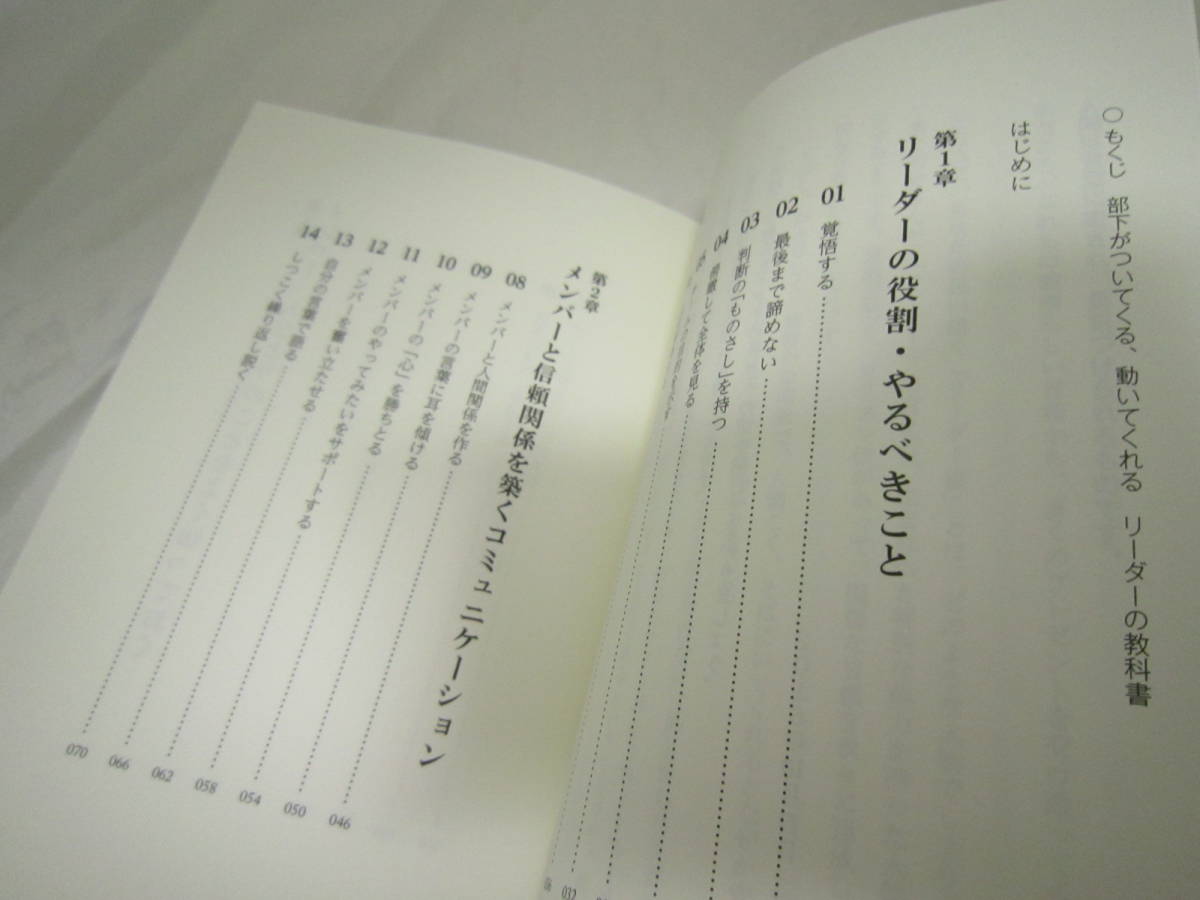 ○もくじ 部下がついてくる、動いてくれる リーダーの教科書
はじめに
第1章
リーダーの役割・やるべきこと
01 覚悟する
02 最後まで諦めない
03 判断の「ものさし」を持つ
04 して全体を見る
032
第2章
メンバーと信頼関係を築くコミュニケーション
08 メンバーと人間関係を作る 046
09 メンバーの言葉に耳を傾ける 050
10 メンバーの「心」を勝ちとる 054
11 メンバーのやってみたいをサポートする 058
12 メンバーを奮い立たせる 062
13 自分の言葉で語る 066
14 しつこく繰り返し説く 070